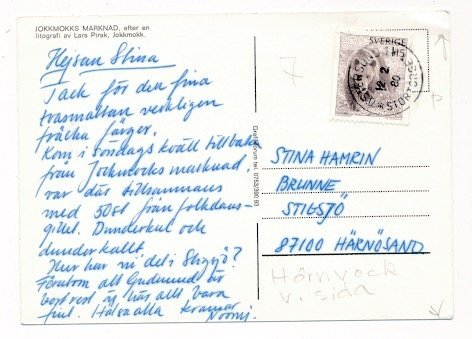 JOKKMOKKS MARKNAD, efter en
litografi av Lars Pirak, Jokkmokk.
Hejsan Stina
Tack för den fina
trasmattan verkligen
fräcka färger.
Kom i söndags kväll tillbaka
från Jockmocks marknad,
var där tillsammans
med 50st från folkdans-
gillet. Dunderkul och
dunderkallt.
Hur har ni det i Stigsjö?
Förutom att Gudmund är
bortrest är allt bara
fint. Hälsa alla kramar
Noomi.
SVERIGE
12 2
80
STINA HAMRIN
BRUNNE
STIGSJÖ
87100 HÄRNÖSAND
Hörnveck
v. sida
7